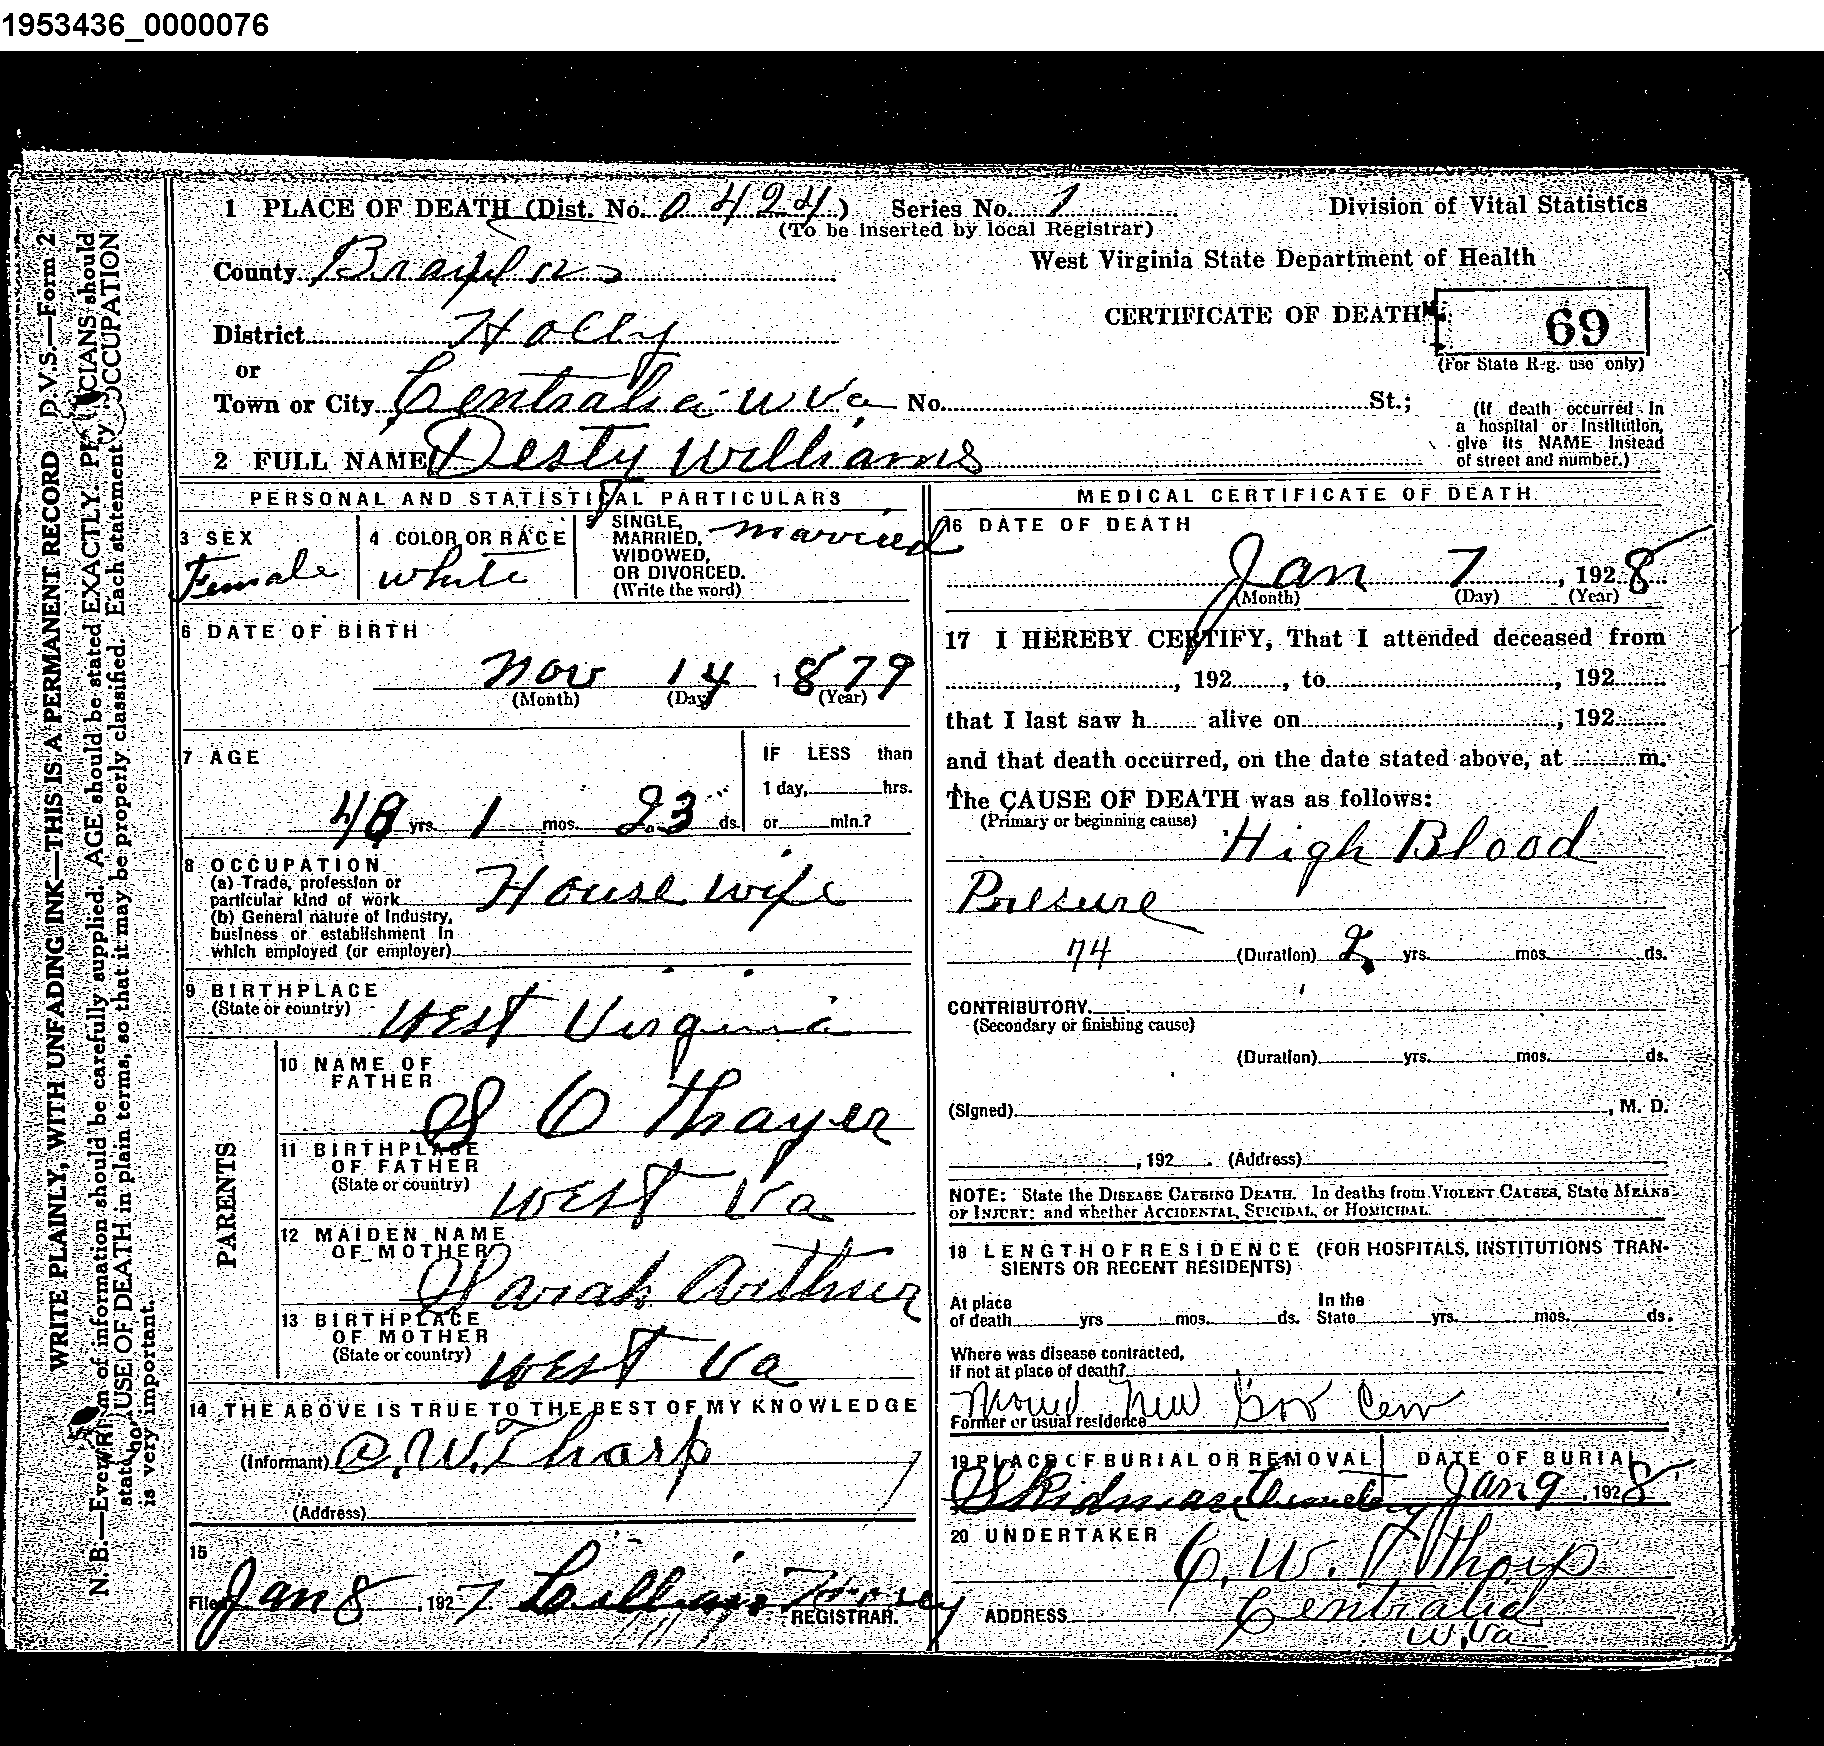 1953436_0000076
1 PLACE OF DEATH (Dist. No. 0424) Series No. 1 Division of Vital Statistics
(To be inserted by local Registrar)
County Braxton West Virginia State Department of Health
District Holly CERTIFICATE OF DEATH 69
(For State Reg. use only)
or
Town or City Centralia W Va No. St.;
(If death occurred in
a hospital or institution,
give its NAME instead
of street and number.)
2 FULL NAME Desty Williams
PERSONAL AND STATISTICAL PARTICULARS
3 SEX
Female
4 COLOR OR RACE
white
5 SINGLE,
MARRIED,
WIDOWED,
OR DIVORCED.
(Write the word)
married
6 DATE OF BIRTH
Nov 14 1879
(Month) (Day) (Year)
7 AGE
48 yrs. 1 mos. 23 ds.
IF LESS than
1 day, hrs.
or min.?
8 OCCUPATION
(a) Trade, profession or
particular kind of work House wife
(b) General nature of Industry,
business or establishment in
which employed (or employer)
9 BIRTHPLACE
(State or country) West Virginia
PARENTS
10 NAME OF
FATHER
S O Thayer
11 BIRTHPLACE
OF FATHER
(State or country) West Va
12 MAIDEN NAME
OF MOTHER
Sarah Arthur
13 BIRTHPLACE
OF MOTHER
(State or country) West Va
14 THE ABOVE IS TRUE TO THE BEST OF MY KNOWLEDGE
(Informant) C.W. Tharp
(Address)
15
Filed Jan 8, 1927. Lillian
REGISTRAR.
MEDICAL CERTIFICATE OF DEATH
16 DATE OF DEATH
Jan 7, 1928
(Month) (Day) (Year)
17 I HEREBY CERTIFY, That I attended deceased from
, 192 , to , 192
that I last saw h alive on , 192
and that death occurred, on the date stated above, at m.
The CAUSE OF DEATH was as follows:
(Primary or beginning cause)
High Blood
Presure
74 (Duration) 2 yrs. mos. ds.
CONTRIBUTORY
(Secondary or finishing cause)
(Duration) yrs. mos. ds.
(Signed) , M. D.
, 192 . (Address)
NOTE: State the DISEASE CAUSING DEATH. In deaths from VIOLENT CAUSES, State MEANS
OF INJURY: and whether ACCIDENTAL, SUICIDAL, or HOMICIDAL.
18 LENGTH OF RESIDENCE (FOR HOSPITALS, INSTITUTIONS TRAN-
SIENTS OR RECENT RESIDENTS)
At place
of death yrs mos. ds.
In the
State yrs. mos. ds.
Where was disease contracted,
if not at place of death?
Former or usual residence
19 PLACE OF BURIAL OR REMOVAL
Skidmore Cemetery
DATE OF BURIAL
Jan 9, 1928
20 UNDERTAKER
C. W. Tharp
ADDRESS Centralia
W.Va
D.V.S.—Form 2
WRITE PLAINLY, WITH UNFADING INK—THIS IS A PERMANENT RECORD
N. B.—Every item of information should be carefully supplied. AGE should be stated EXACTLY. PHYSICIANS should
state CAUSE OF DEATH in plain terms, so that it may be properly classified. Each statement of OCCUPATION
is very important.